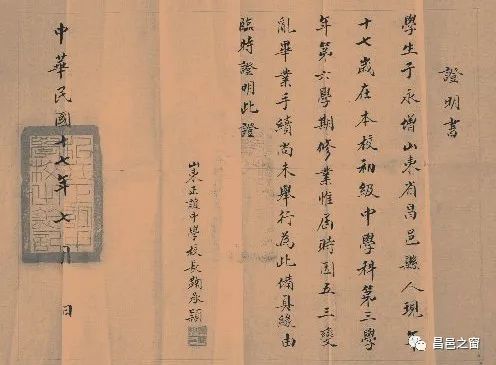 證明書
學生于永增山東省昌邑縣人現年
十七歲在本校初級中學科第三學
年第六學期修業惟屆時因五三變
亂畢業手續尚未舉行為此備具緣由
臨時證明此證
山東正誼中學校長鞠承穎
中華民國十七年七月 日
昌邑之窗